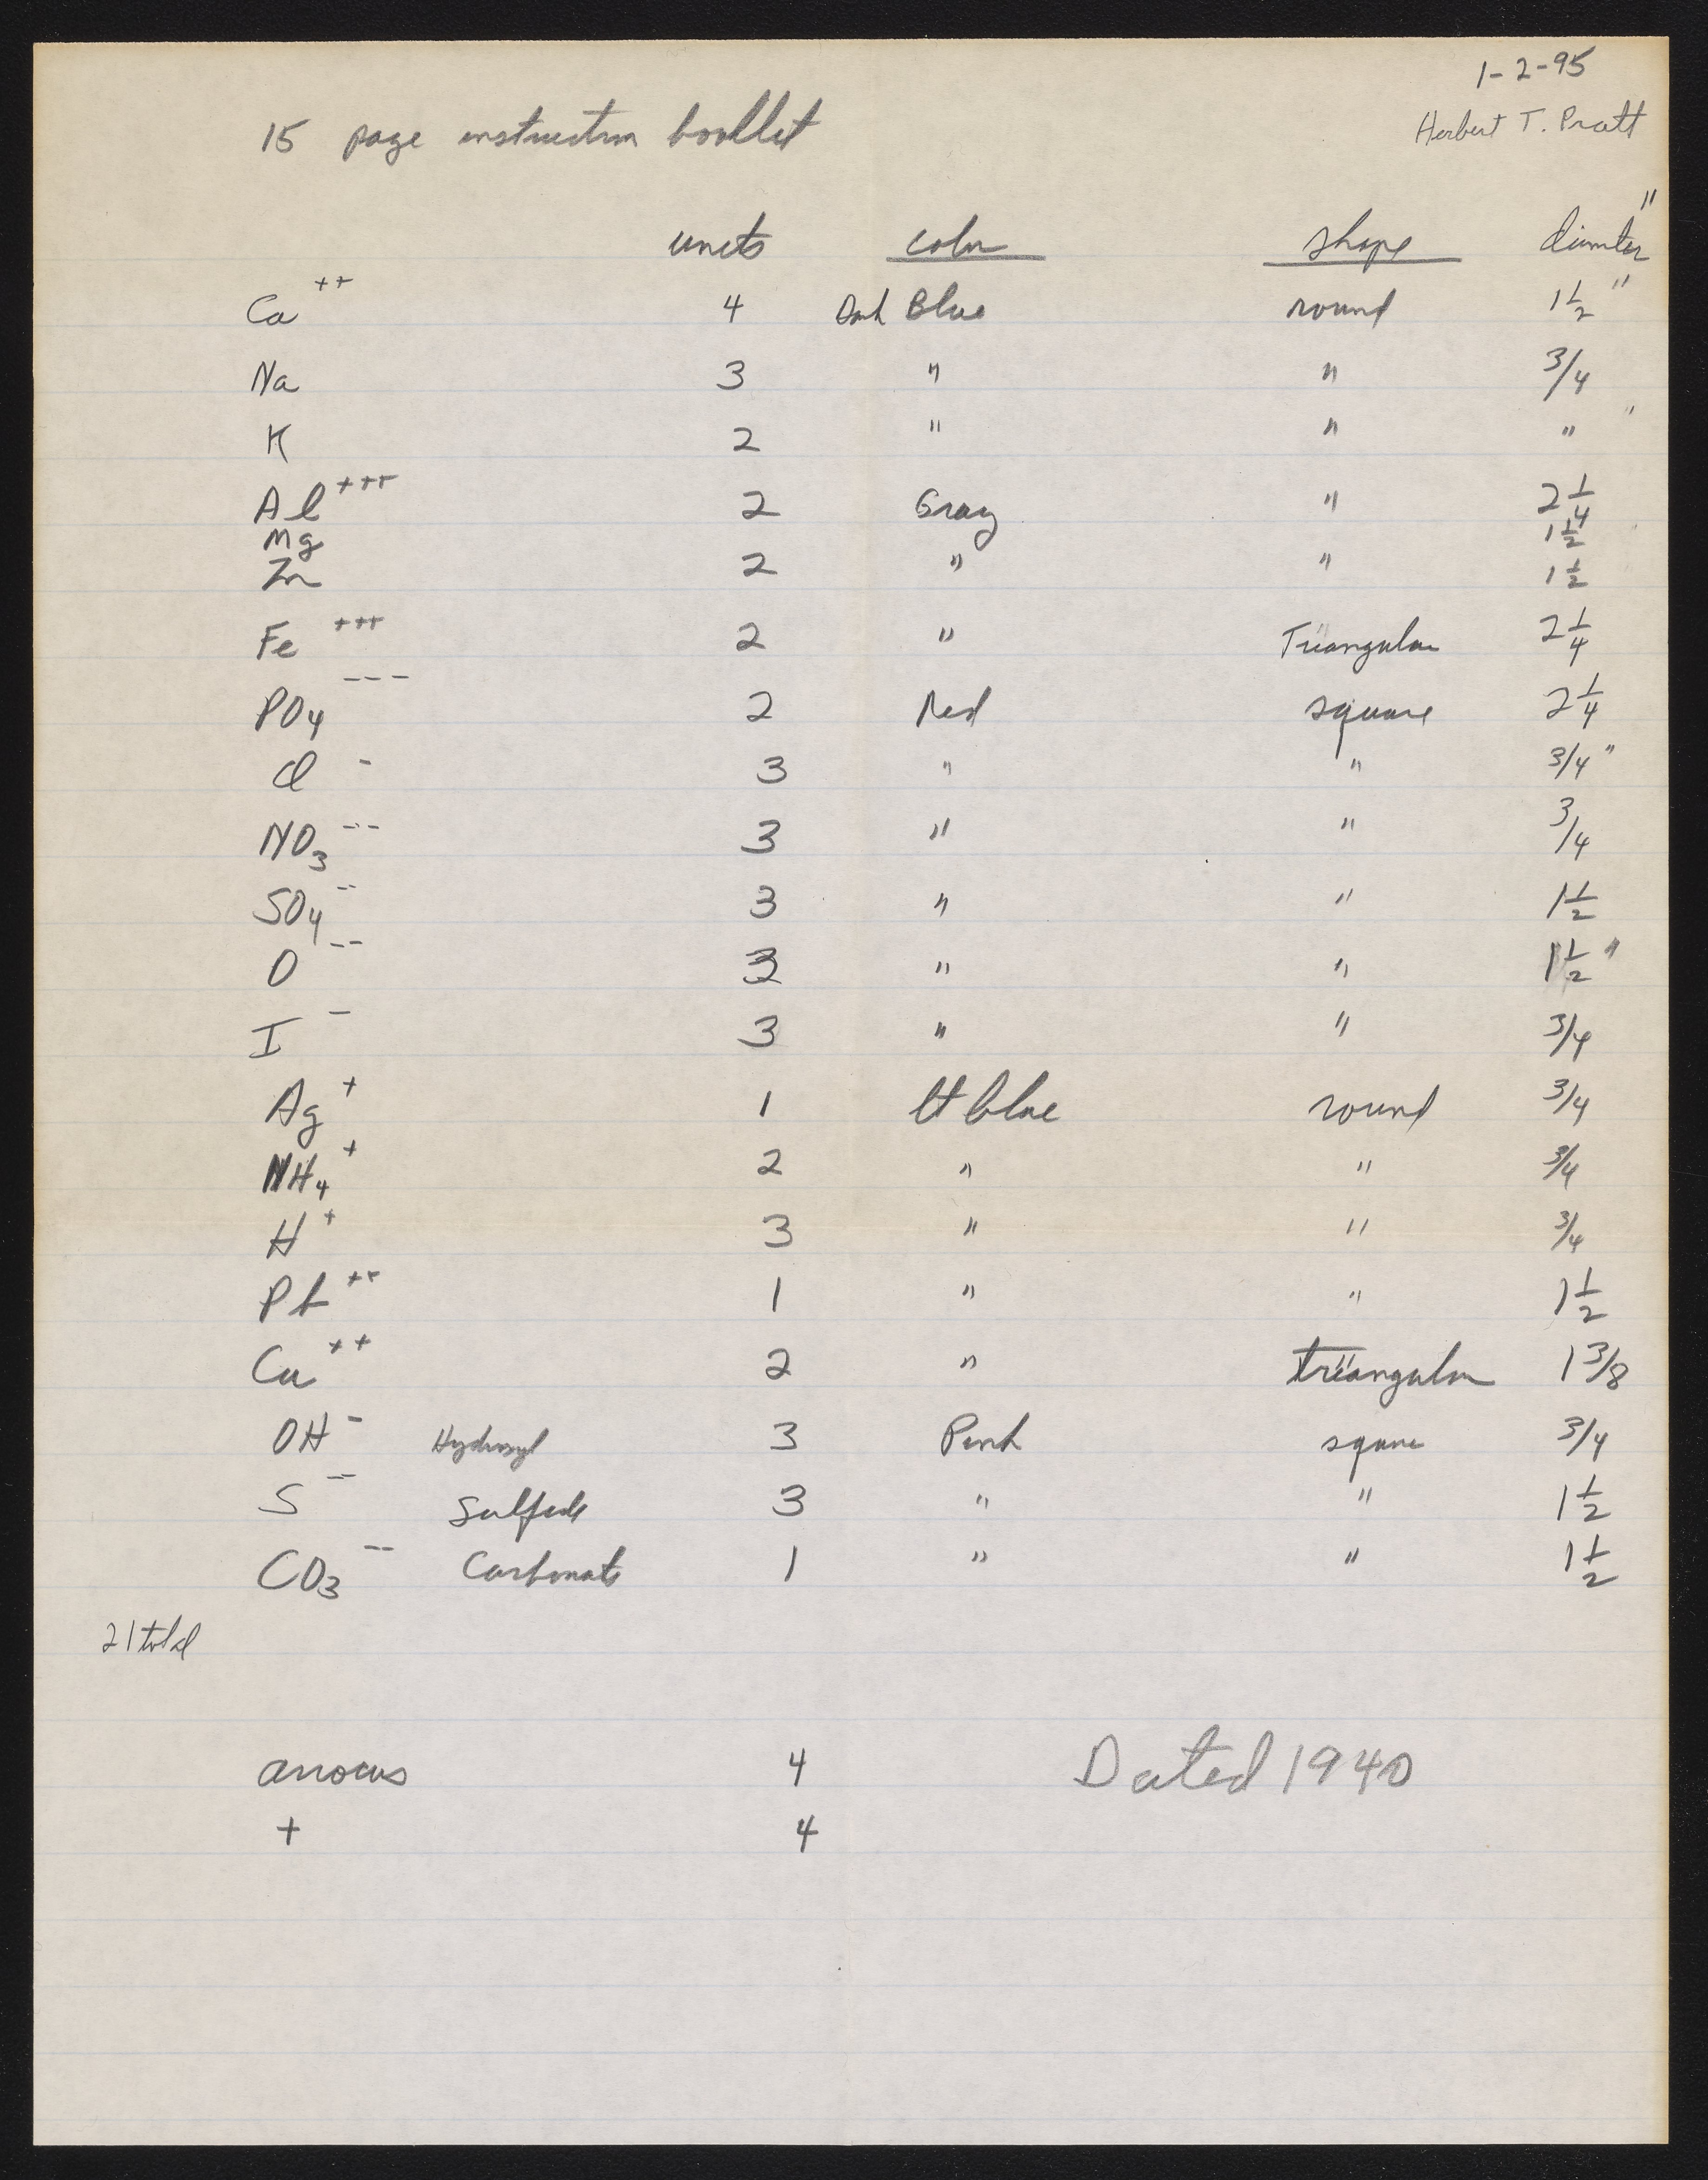 1-2-95
Herbert T. Pratt
15 page instruction booklet
units color shape diamter "
Ca ++ 4 Dark Blue round 1 1/2 "
Na 3 " " 3/4
K 2 " " " "
Al +++ 2 Gray " 2 1/4
Mg 1 1/2
Zn 2 " " 1 1/2
Fe +++ 2 " Triangular 2 1/4
PO4 --- 2 Red square 2 1/4
Cl - 3 " " 3/4 "
NO3 -- 3 " " 3/4
SO4 -- 3 " " 1 1/2
O -- 3 " " 1 1/2 "
I - 3 " " 3/4
Ag + 1 lt blue round 3/4
NH4 + 2 " " 3/4
H + 3 " " 3/4
Pb ++ 1 " " 1 1/2
Cu ++ 2 " triangular 1 3/8
OH - Hydroxyl 3 Pink square 3/4
S -- Sulfide 3 " " 1 1/2
CO3 -- Carbonate 1 " " 1 1/2
21 total
arrows 4 Dated 1940
+ 4